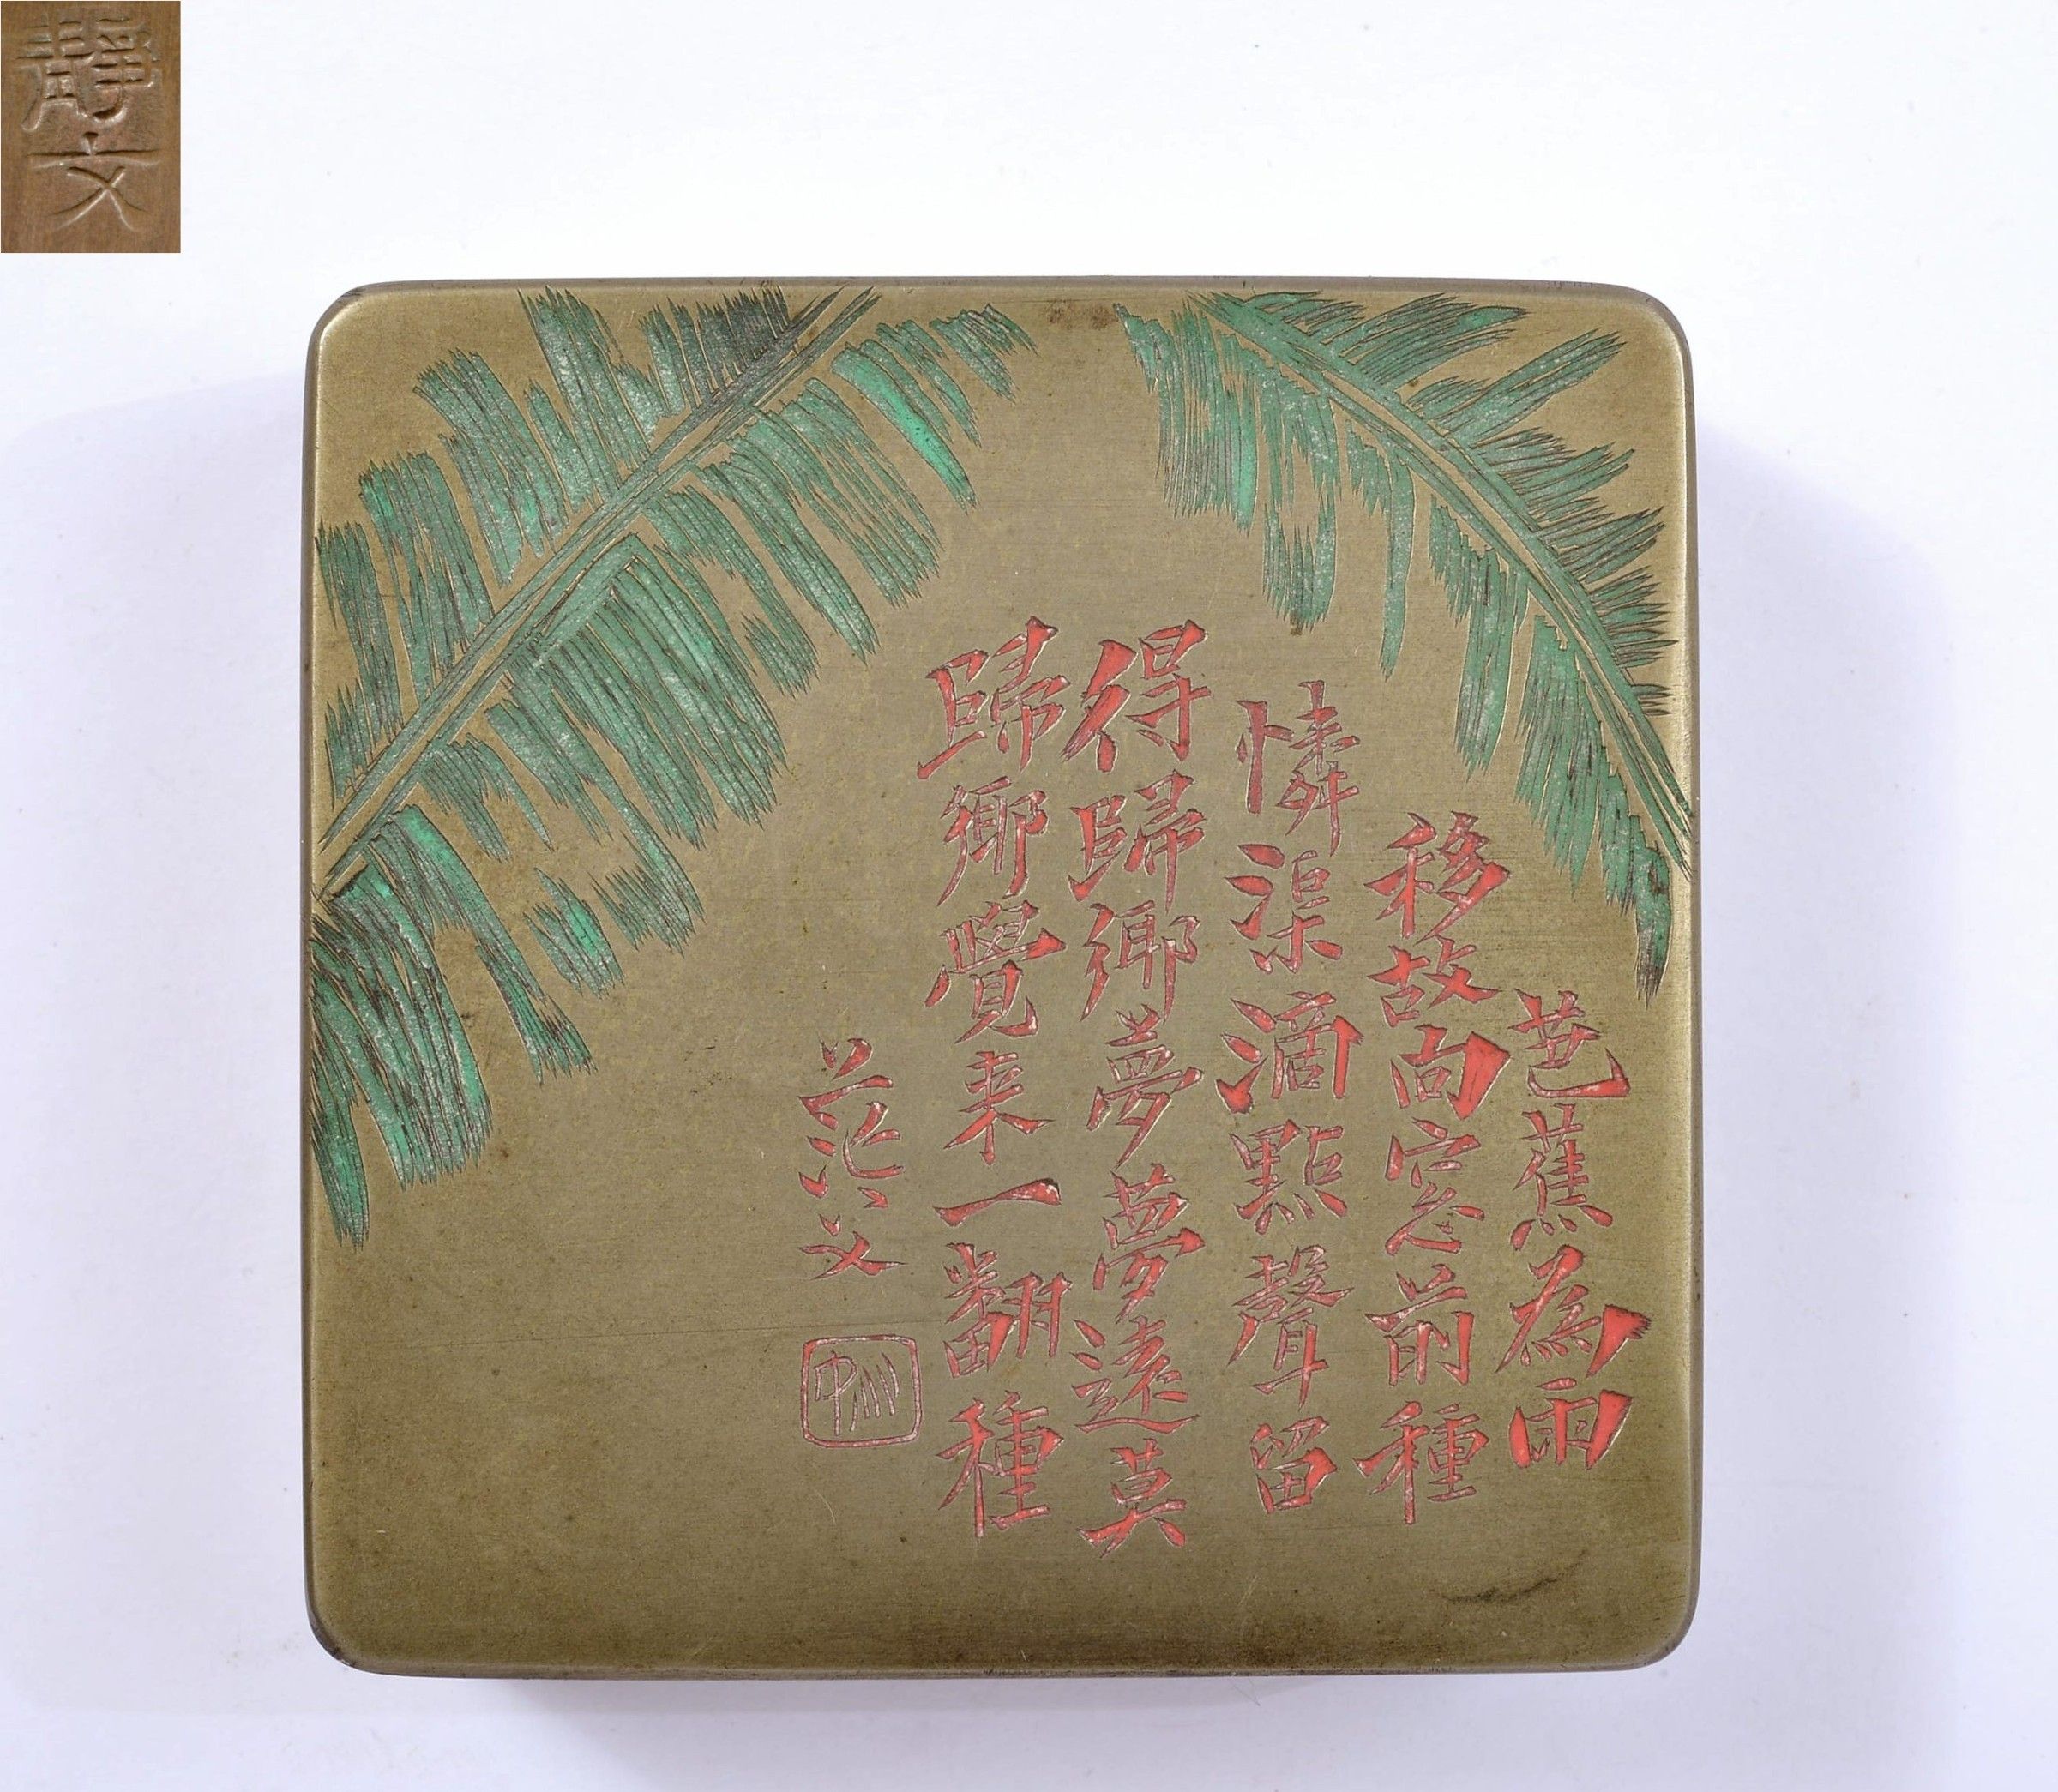 靜文
芭蕉為雨
移故向窓前種
憐渠滴點聲留
得歸鄉夢夢遠莫
歸鄉覺来一翻種
茫父